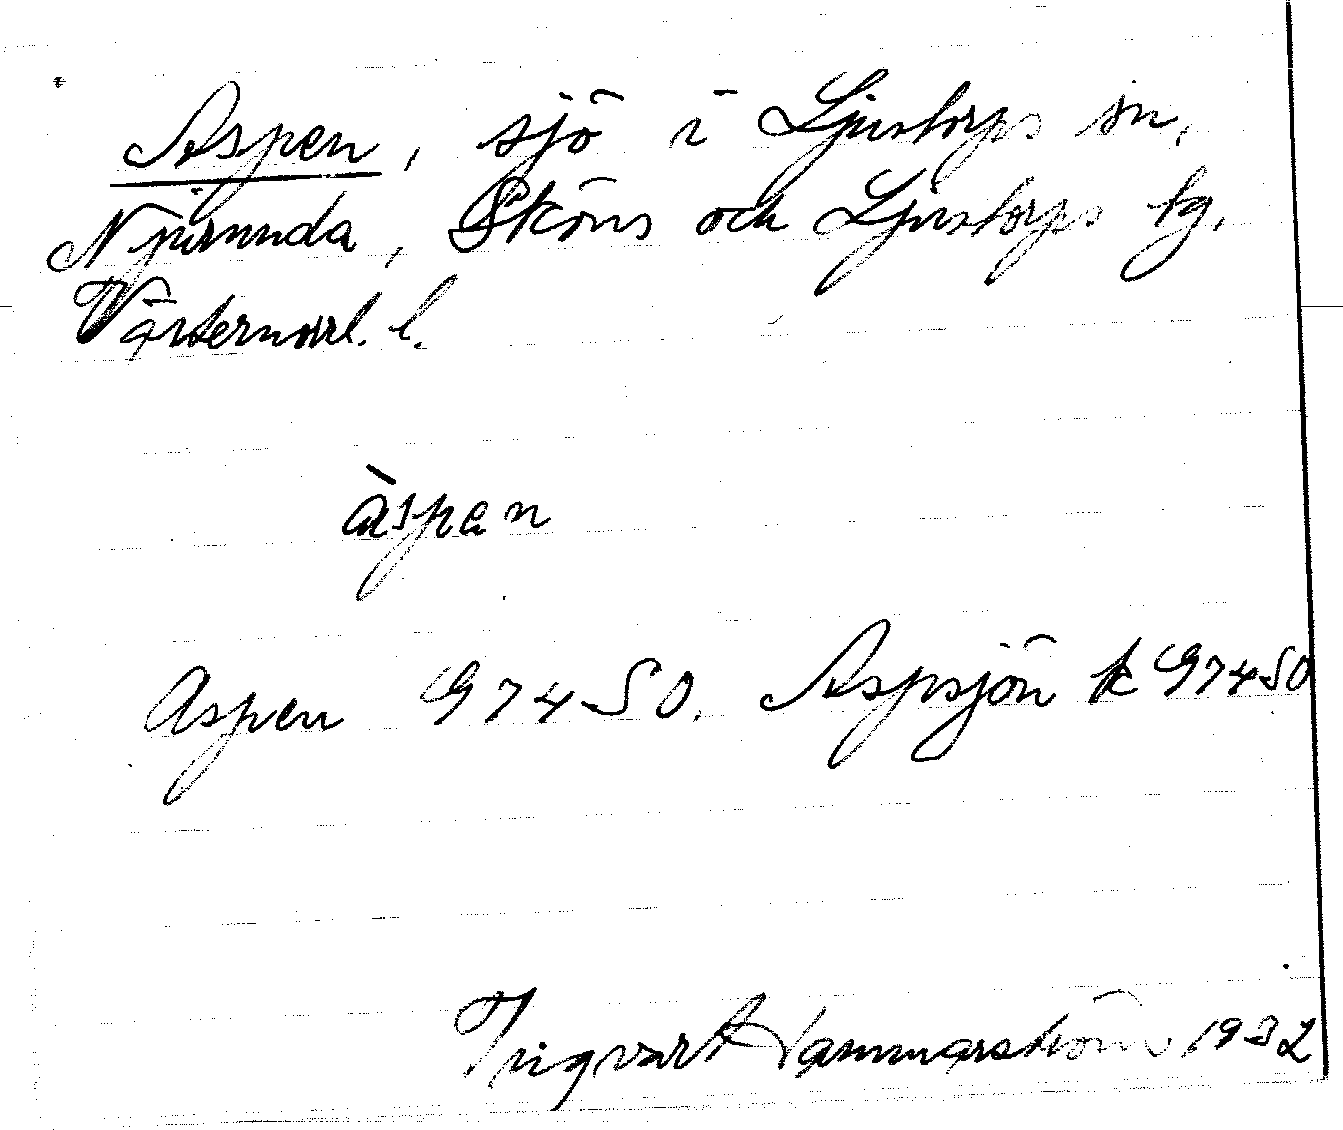 Aspen, sjö i Ljustorps sn,
Njurunda, Sköns och Ljustorps tg.
Västernorrl. l.
àspen
Aspen G74SO. Aspsjön k G74SO
Ingvart Hammarström 1932